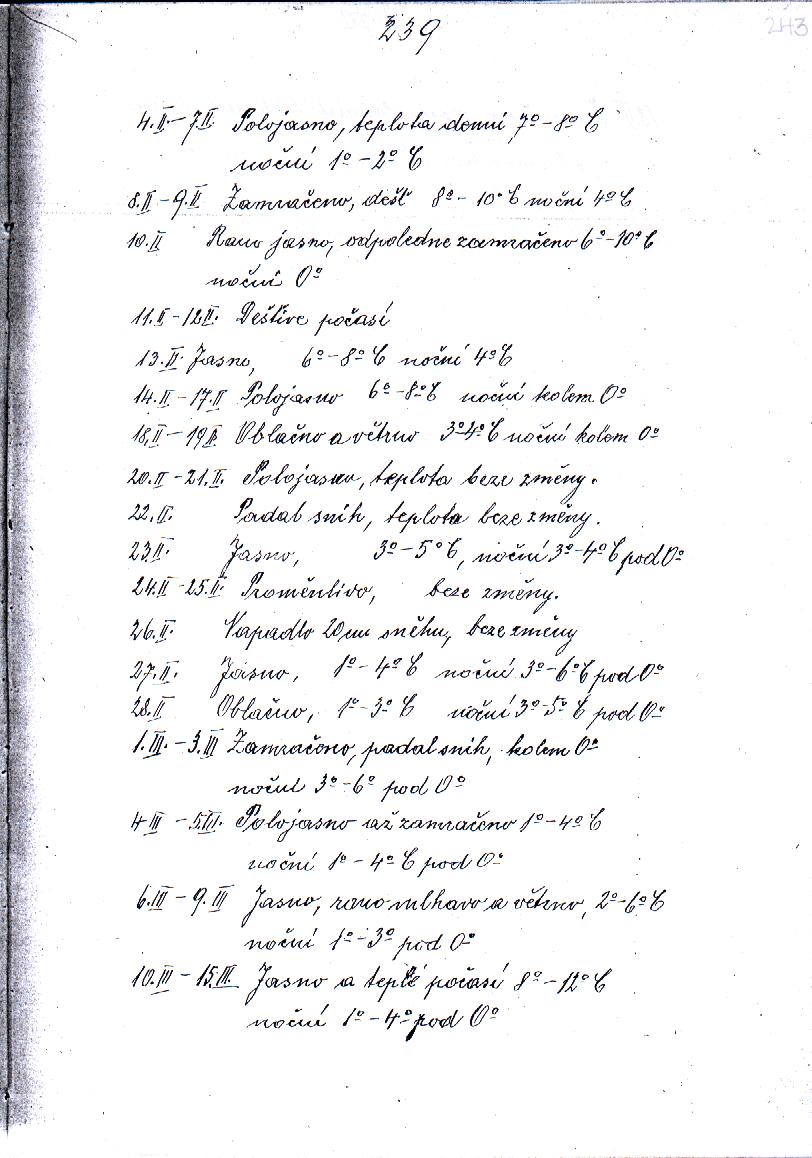 239
243
4.II.-7.II Polojasno, teplota denní 7º-8º C
noční 1º-2º C
8.II-9.II Zamračeno, dešť 8º-10º C noční 4º C
10.II Rano jasno, odpoledne zamračeno 6º-10º C
noční 0º
11.II-12.II. Deštive počasí
13.II. Jasno, 6º-8º C noční 4º C
14.II-17.II Polojasno 6º-8º C noční kolem 0º
18.II-19.II Oblačno a větrno 3º4º C noční kolem 0º
20.II-21.II. Polojasno, teplota beze změny.
22.II. Padal snih, teplota beze změny.
23.II. Jasno, 3º-5º C, noční 3º-4º C pod 0º
24.II-25.II. Proměnlivo, beze změny.
26.II. Napadlo 20 cm sněhu, beze změny
27.II. Jasno, 1º-4º C noční 3º-6º C pod 0º
28.II Oblačno, 1º-3º C noční 3º-5º C pod 0º
1.III.-3.III Zamračeno, padal snih, kolem 0º
noční 3º-6º pod 0º
4 III -5.III. Polojasno až zamračeno 1º-4º C
noční 1º-4º C pod 0º
6.III-9.III Jasno, rano mlhavo a větrno, 2º-6º C
noční 1º-3º pod 0º
10.III-15.III. Jasno a teplé počasí 8º-12º C
noční 1º-4º pod 0º